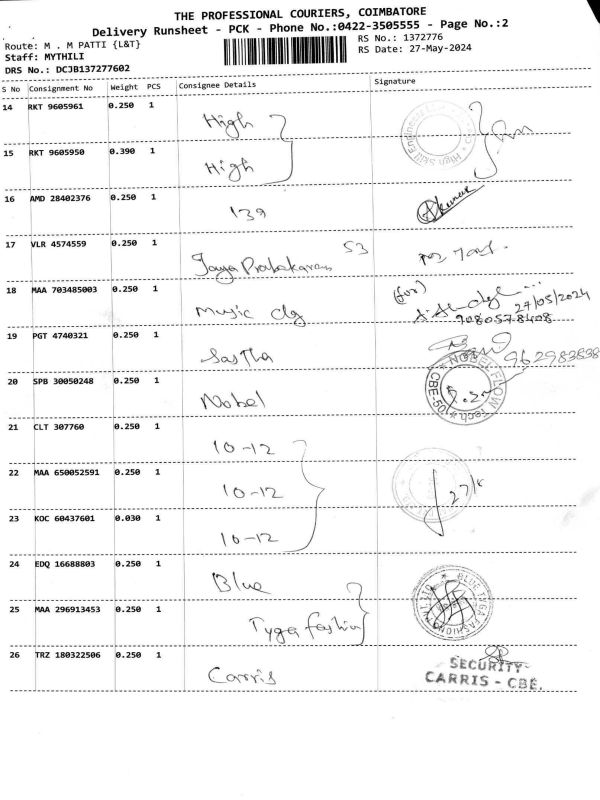 THE PROFESSIONAL COURIERS, COIMBATORE
Delivery Runsheet - PCK - Phone No.:0422-3505555 - Page No.:2
Route: M . M PATTI {L&T}
RS No.: 1372776
Staff: MYTHILI
RS Date: 27-May-2024
DRS No.: DCJB137277602
S No Consignment No Weight PCS Consignee Details Signature
14 RKT 9605961 0.250 1 High
15 RKT 9605950 0.390 1 High
16 AMD 28402376 0.250 1 139
17 VLR 4574559 0.250 1 Jaya Prabakaran 53
18 MAA 703485003 0.250 1 Music clg (for)
27/05/2024
9080578408
19 PGT 4740321 0.250 1 Sastha
20 SPB 30050248 0.250 1 Nobel NOBEL FLOW Tech
21 CLT 307760 0.250 1 10-12
22 MAA 650052591 0.250 1 10-12
23 KOC 60437601 0.030 1 10-12
24 EDQ 16688803 0.250 1 Blue
25 MAA 296913453 0.250 1 Tyga fashion
26 TRZ 180322506 0.250 1 Carris
SECURITY
CARRIS - CBE.